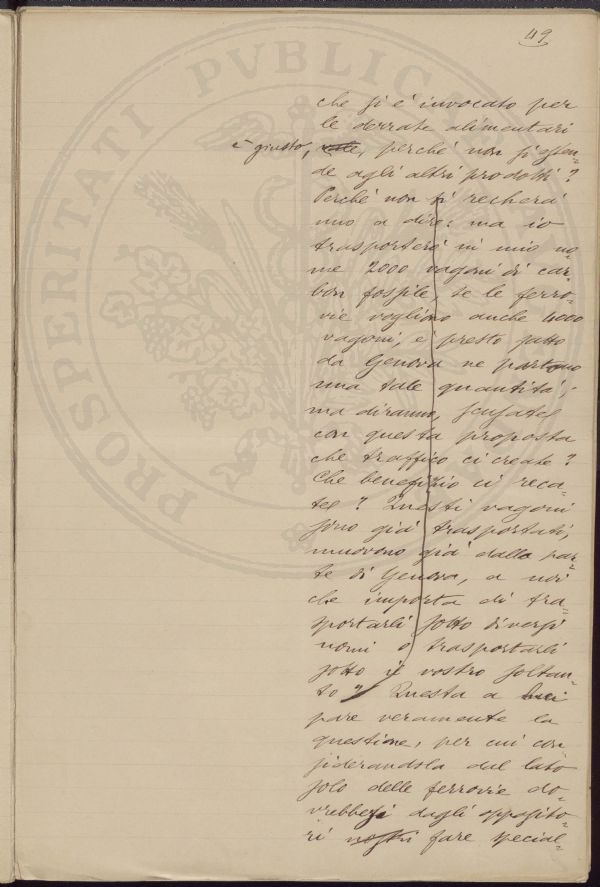 49
PROSPERITATI PVBLICAE
che si è invocato per
le derrate alimentari
è giusto, vale, perché non si esten-
de agli altri prodotti?
Perché non si recherà
uno a dire: ma io
trasporterò in mio no=
me 2000 vagoni di car=
bon fossile, se le ferro=
vie vogliono anche 4000
vagoni, è presto fatto
da Genova ne partono
una tale quantità;
ma diranno, scusate
con questa proposta
che traffico ci create?
Che benefizio ci reca=
te? Questi vagoni
sono già trasportati,
muovono già dalla par=
te di Genova, a noi
che importa di tra=
sportarli sotto diversi
nomi o trasportarli
sotto il vostro soltan=
to? Questa a
pare veramente la
questione, per cui con
siderandola dal lato
solo delle ferrovie do=
vrebbesi dagli opposito=
ri nostri fare special=